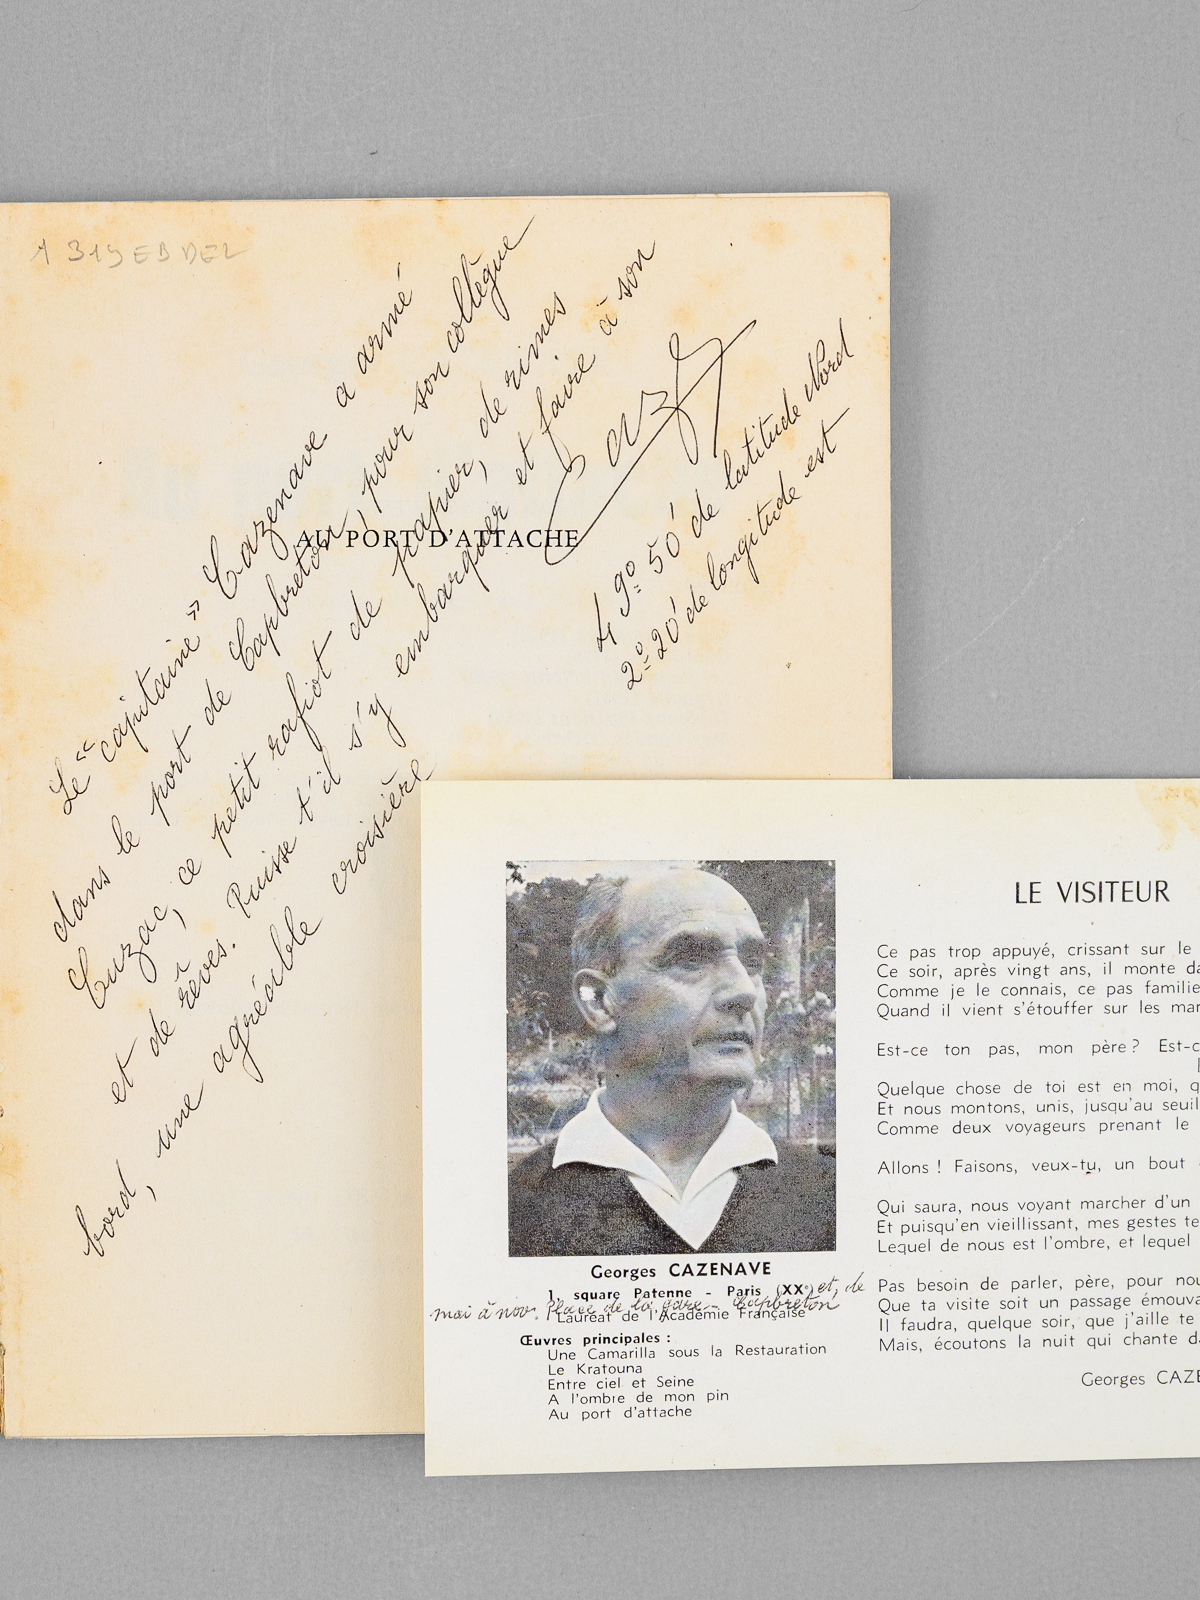 1 319 EB DEL
Le "capitaine" Cazenave a armé
dans le port de Capbreton, pour son collègue
Cuzac, ce petit rafiot de papier, de rimes
et de rêves. Puisse t'il s'y embarquer et faire à son
bord, une agréable croisière
AU PORT D'ATTACHE
49º 50' de latitude Nord
2º 20' de longitude est
Georges CAZENAVE
1, square Patenne - Paris (XXe) et, de
mai à nov. Place de la gare - Capbreton
Lauréat de l'Académie Française
Œuvres principales :
Une Camarilla sous la Restauration
Le Kratouna
Entre ciel et Seine
A l'ombre de mon pin
Au port d'attache
LE VISITEUR
Ce pas trop appuyé, crissant sur le
Ce soir, après vingt ans, il monte da
Comme je le connais, ce pas familie
Quand il vient s'étouffer sur les mar
Est-ce ton pas, mon père ? Est-c
Quelque chose de toi est en moi, q
Et nous montons, unis, jusqu'au seuil
Comme deux voyageurs prenant le
Allons ! Faisons, veux-tu, un bout
Qui saura, nous voyant marcher d'un
Et puisqu'en vieillissant, mes gestes te
Lequel de nous est l'ombre, et lequel
Pas besoin de parler, père, pour nou
Que ta visite soit un passage émouva
Il faudra, quelque soir, que j'aille te
Mais, écoutons la nuit qui chante da
Georges CAZE